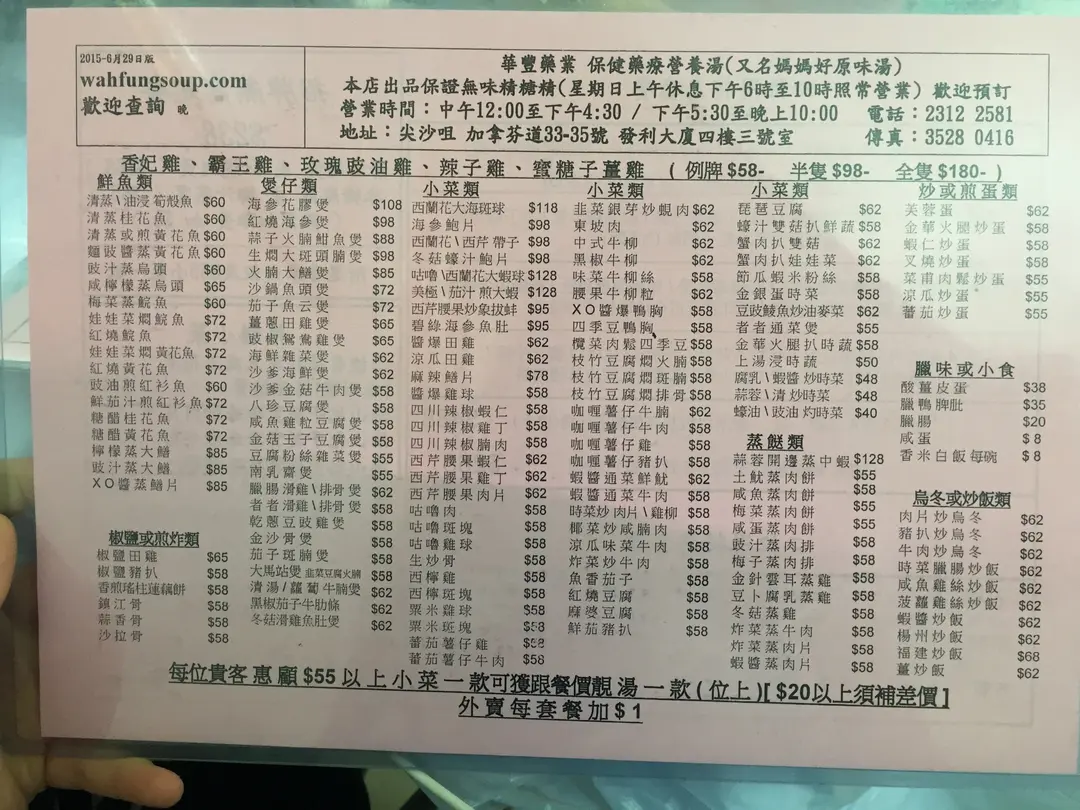 2015-6月29日版
wahfungsoup.com
歡迎查詢 晚
華豐藥業 保健藥療營養湯(又名媽媽好原味湯)
本店出品保證無味精糖精(星期日上午休息下午6時至10時照常營業) 歡迎預訂
營業時間：中午12:00至下午4:30 / 下午5:30至晚上10:00 電話：2312 2581
地址：尖沙咀 加拿芬道33-35號 發利大廈四樓三號室 傳真：3528 0416
香妃雞、霸王雞、玫瑰豉油雞、辣子雞、蜜糖子薑雞 ( 例牌 $58- 半隻 $98- 全隻 $180- )
鮮魚類
清蒸\油浸筍殼魚 $60
清蒸桂花魚 $60
清蒸或煎黃花魚 $60
麵豉醬蒸黃花魚 $60
豉汁蒸烏頭 $60
咸檸檬蒸烏頭 $65
梅菜蒸鯇魚 $60
娃娃菜燜鯇魚 $72
紅燒鯇魚 $72
娃娃菜燜黃花魚 $72
紅燒黃花魚 $72
豉油煎紅衫魚 $60
鮮茄汁煎紅衫魚 $72
糖醋桂花魚 $72
糖醋黃花魚 $72
檸檬蒸大鱔 $85
豉汁蒸大鱔 $85
XO醬蒸鱔片 $85
椒鹽或煎炸類
椒鹽田雞 $65
椒鹽豬扒 $58
香煎瑤柱蓮藕餅 $58
鎮江骨 $58
蒜香骨 $58
沙拉骨 $58
煲仔類
海參花膠煲 $108
紅燒海參煲 $98
蒜子火腩鮋魚煲 $88
生燜大斑頭腩煲 $98
火腩大鱔煲 $85
沙鍋魚頭煲 $72
茄子魚云煲 $72
薑蔥田雞煲 $65
豉椒鴛鴦雞煲 $65
海鮮雜菜煲 $62
沙爹海鮮煲 $62
沙爹金菇牛肉煲 $58
八珍豆腐煲 $58
咸魚雞粒豆腐煲 $58
金菇玉子豆腐煲 $58
豆腐粉絲雜菜煲 $55
南乳齋煲 $55
臘腸滑雞\排骨煲 $62
者者滑雞\排骨煲 $62
乾蔥豆豉雞煲 $58
金沙骨煲 $58
茄子斑腩煲 $58
大馬站煲 韭菜豆腐火腩 $58
清湯/蘿蔔牛腩煲 $62
黑椒茄子牛肋條 $62
冬菇滑雞魚肚煲 $62
小菜類
西蘭花大海斑球 $118
海參鮑片 $98
西蘭花\西芹帶子 $98
冬菇蠔汁鮑片 $98
咕嚕\西蘭花大蝦球 $128
美極\茄汁煎大蝦 $128
西芹腰果炒象拔蚌 $95
碧綠海參魚肚 $95
醬爆田雞 $62
涼瓜田雞 $62
麻辣鱔片 $78
醬爆雞球 $58
四川辣椒蝦仁 $58
四川辣椒雞丁 $58
四川辣椒腩肉 $58
西芹腰果蝦仁 $62
西芹腰果雞丁 $62
西芹腰果肉片 $62
咕嚕肉 $58
咕嚕斑塊 $58
咕嚕雞球 $58
生炒骨 $58
西檸雞 $58
西檸斑塊 $58
粟米雞球 $58
粟米斑塊 $58
蕃茄薯仔雞 $58
蕃茄薯仔牛肉 $58
小菜類
韭菜銀芽炒蜆肉 $62
東坡肉 $62
中式牛柳 $62
黑椒牛柳 $62
味菜牛柳絲 $58
腰果牛柳粒 $62
XO醬爆鴨胸 $58
四季豆鴨胸 $58
欖菜肉鬆四季豆 $58
枝竹豆腐燜火腩 $58
枝竹豆腐燜斑腩 $58
枝竹豆腐燜排骨 $58
咖喱薯仔牛腩 $62
咖喱薯仔牛肉 $58
咖喱薯仔雞 $58
咖喱薯仔豬扒 $58
蝦醬通菜鮮魷 $62
蝦醬通菜牛肉 $58
時菜炒肉片\雞柳 $58
椰菜炒咸腩肉 $58
涼瓜味菜牛肉 $58
炸菜炒牛肉 $58
魚香茄子 $58
紅燒豆腐 $58
麻婆豆腐 $58
鮮茄豬扒 $58
小菜類
琵琶豆腐 $62
蠔汁雙菇扒鮮蔬 $58
蟹肉扒雙菇 $62
蟹肉扒娃娃菜 $58
節瓜蝦米粉絲 $58
金銀蛋時菜 $58
豆豉鯪魚炒油麥菜 $62
者者通菜煲 $55
金華火腿扒時蔬 $58
上湯浸時蔬 $50
腐乳\蝦醬炒時菜 $48
蒜蓉\清炒時菜 $48
蠔油\豉油灼時菜 $40
蒸餸類
蒜蓉開邊蒸中蝦 $128
土魷蒸肉餅 $55
咸魚蒸肉餅 $58
梅菜蒸肉餅 $55
咸蛋蒸肉餅 $55
豉汁蒸肉排 $58
梅子蒸肉排 $58
金針雲耳蒸雞 $58
豆卜腐乳蒸雞 $58
冬菇蒸雞 $58
炸菜蒸牛肉 $58
炸菜蒸肉片 $58
蝦醬蒸肉片 $58
炒或煎蛋類
芙蓉蛋 $62
金華火腿炒蛋 $58
蝦仁炒蛋 $58
叉燒炒蛋 $58
菜甫肉鬆炒蛋 $55
涼瓜炒蛋 $55
蕃茄炒蛋 $55
臘味或小食
酸薑皮蛋 $38
臘鴨脾肶 $35
臘腸 $20
咸蛋 $8
香米白飯每碗 $8
烏冬或炒飯類
肉片炒烏冬 $62
豬扒炒烏冬 $62
牛肉炒烏冬 $62
時菜臘腸炒飯 $62
咸魚雞絲炒飯 $62
菠蘿雞絲炒飯 $62
蝦醬炒飯 $62
楊州炒飯 $62
福建炒飯 $68
薑炒飯 $62
每位貴客惠顧$55以上小菜一款可獲跟餐價靚湯一款(位上)[ $20以上須補差價 ]
外賣每套餐加$1